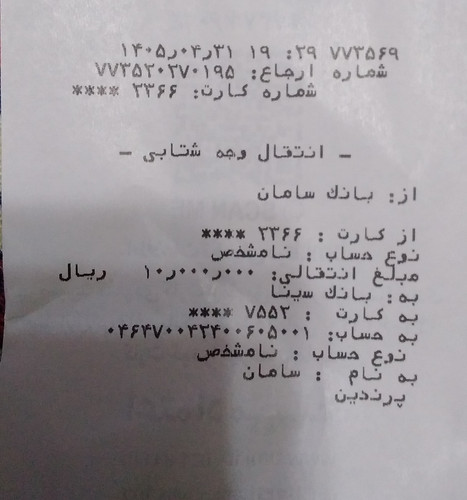 ۷۷۳۵۶۹ ۲۹: ۱۹ ۳۱ر۰۴ر۱۴۰۵
شماره ارجاع: ۷۷۳۵۲۰۲۷۰۱۹۵
شماره کارت: ۲۳۶۶ ****
- انتقال وجه شتابی -
از: بانك سامان
از کارت : ۲۳۶۶ ****
نوع حساب : نامشخص
مبلغ انتقالی: ۱۰ر۰۰۰ر۰۰۰ ریال
به: بانك سینا
به کارت : ۷۵۵۲ ****
به حساب: ۰۴۶۴۷۰۰۴۲۴۰۰۶۰۵۰۰۱
نوع حساب : نامشخص
به نام : سامان
پرندین